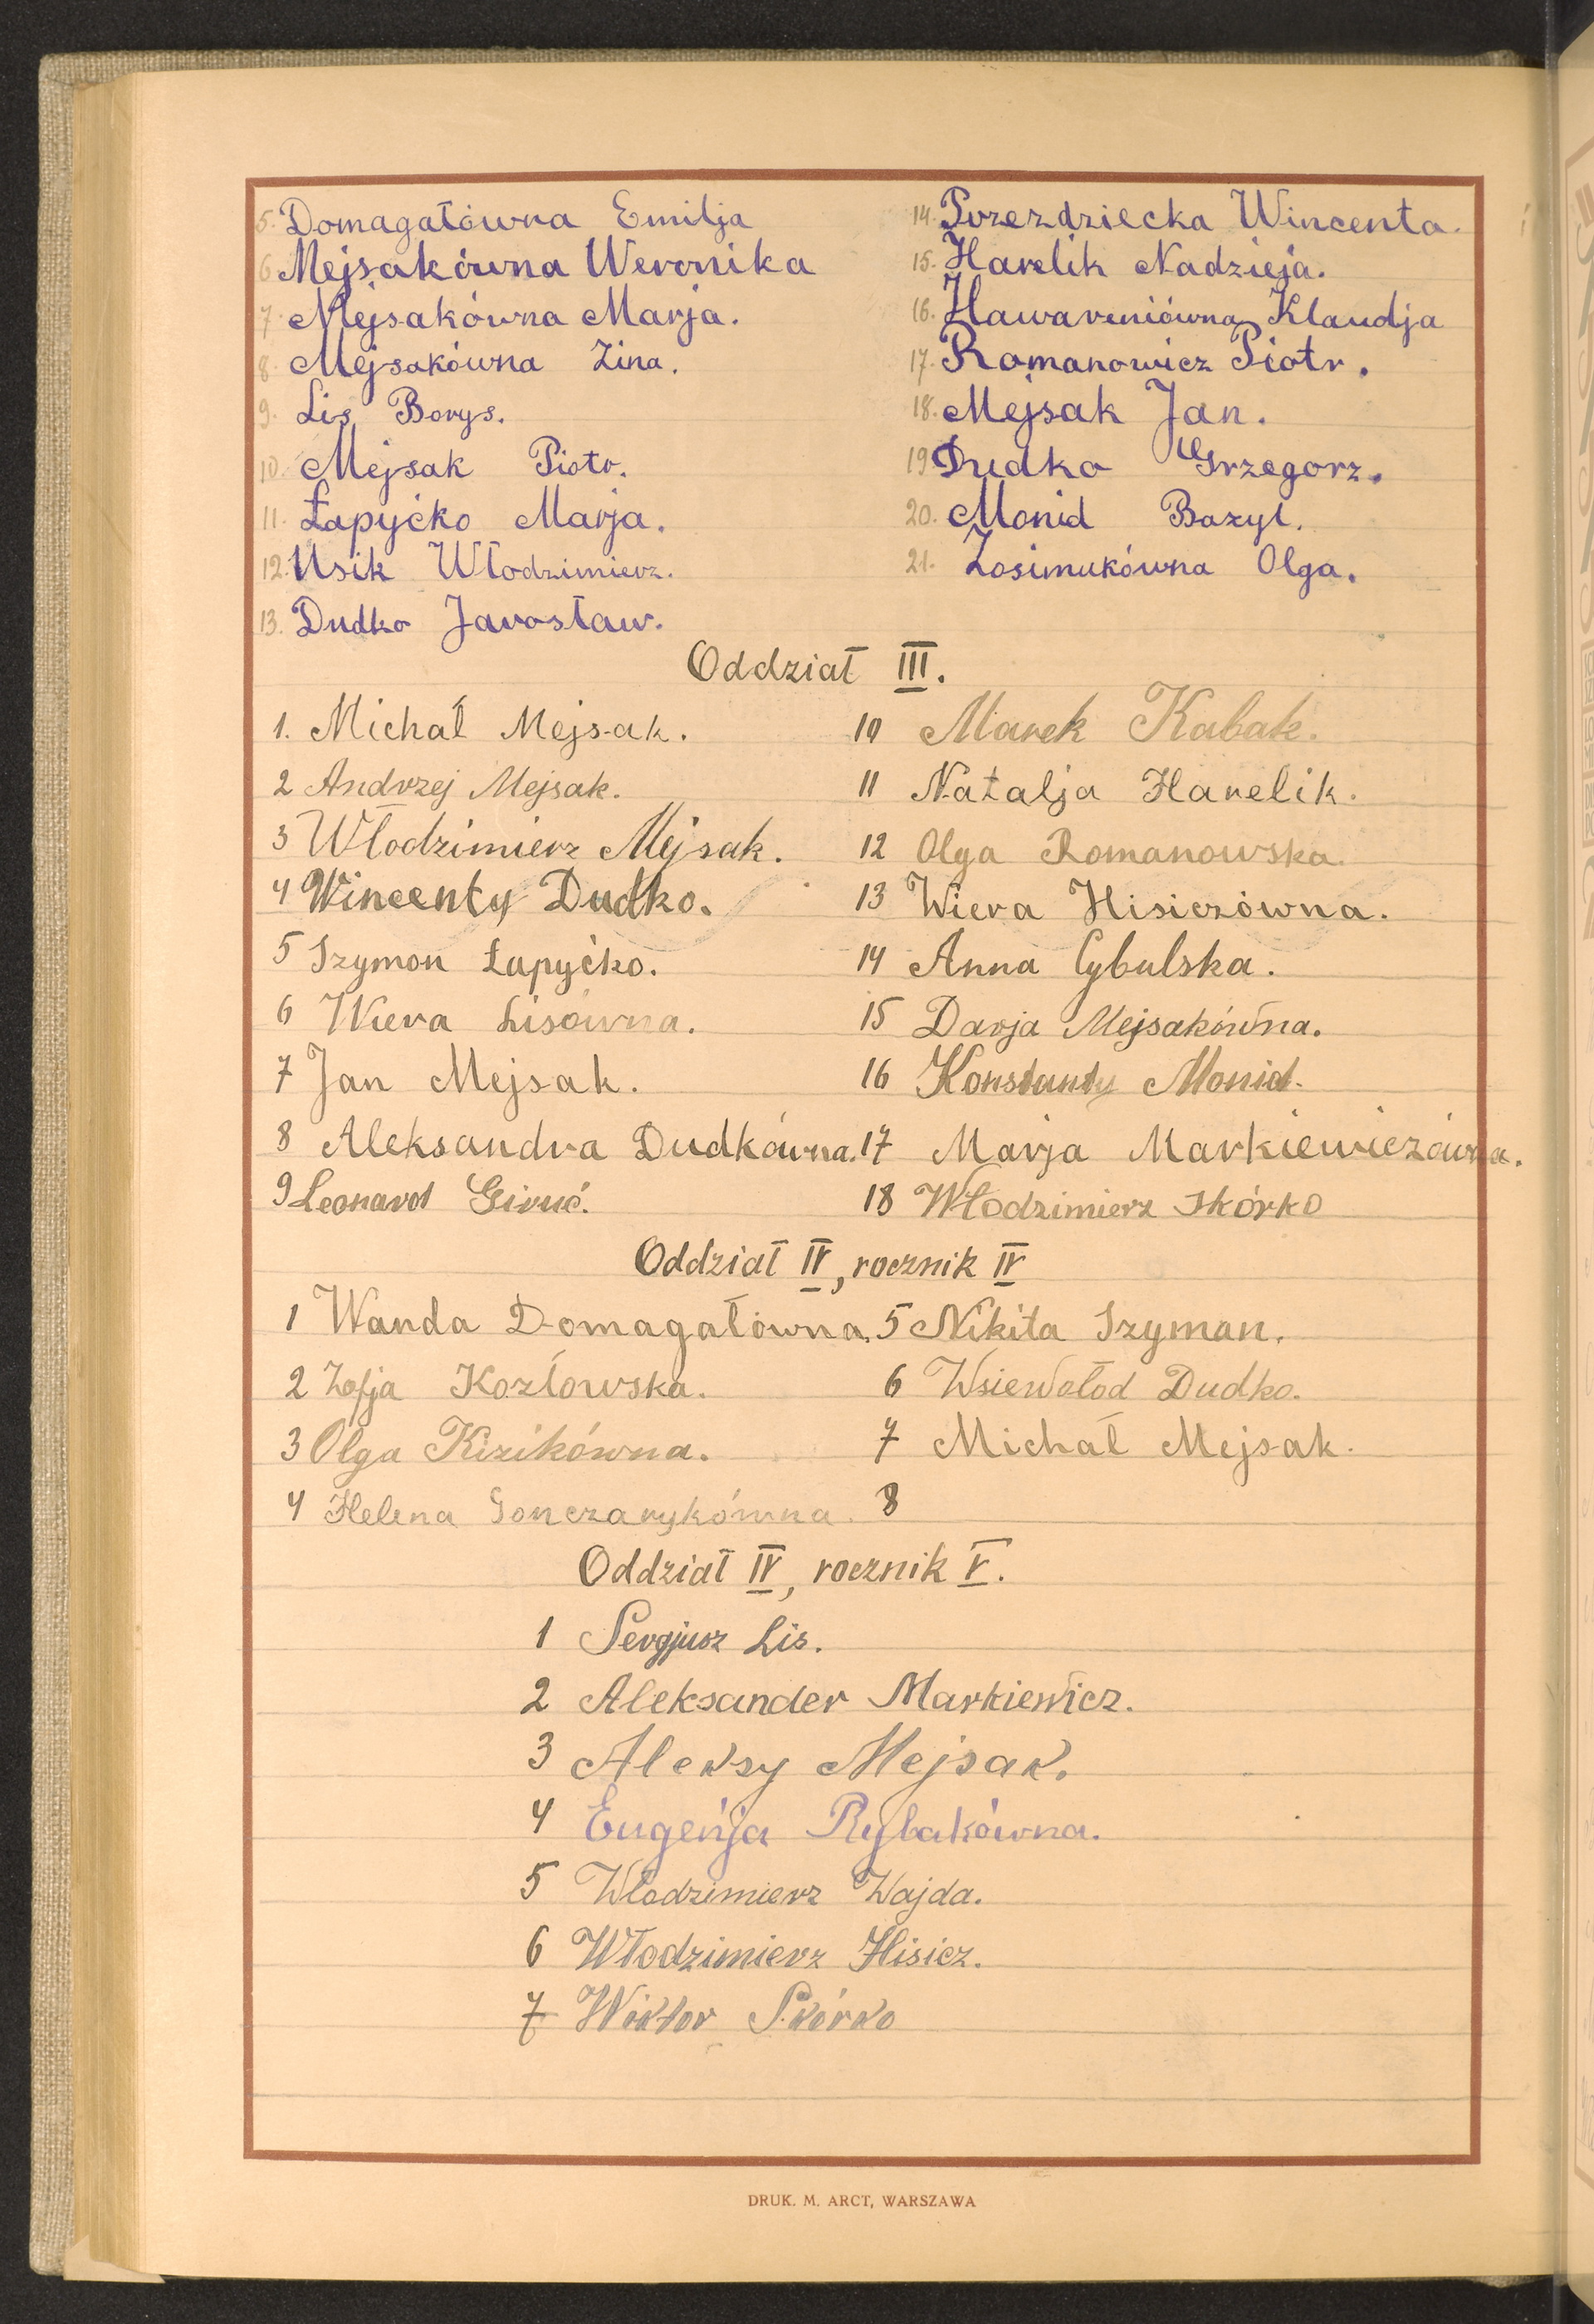 5. Domagałówna Emilja
6 Mejsakówna Weronika
7. Mejsakówna Marja.
8. Mejsakówna Zina.
9. Lis Borys.
10. Mejsak Piotr.
11. Łapyćko Marja.
12. Usik Włodzimierz.
13. Dudko Jarosław.
14. Przezdziecka Wincenta.
15. Harelik Nadzieja.
16. Hawareniówna Klaudja
17. Romanowicz Piotr.
18. Mejsak Jan.
19 Dudko Grzegorz.
20. Monid Bazyl.
21. Zosimukówna Olga.
Oddział III.
1. Michał Mejsak.
2 Andrzej Mejsak.
3 Włodzimierz Mejsak.
4 Wincenty Dudko.
5 Szymon Łapyćko.
6 Wiera Lisówna.
7 Jan Mejsak.
8 Aleksandra Dudkówna.
9 Leonard Giruć.
10 Marek Kabak.
11 Natalja Harelik.
12 Olga Romanowska.
13 Wiera Hisiczówna.
14 Anna Cybulska.
15 Darja Mejsakówna.
16 Konstanty Monid.
17 Marja Markiewiczówna.
18 Włodzimierz Skórko
Oddział IV, rocznik IV
1 Wanda Domagałówna.
2 Zofja Kozłowska.
3 Olga Kizikówna.
4 Helena Gonczarykówna.
5 Nikita Szyman.
6 Wsiewołod Dudko.
7 Michał Mejsak.
8
Oddział IV, rocznik V.
1 Sergjusz Lis.
2 Aleksander Markiewicz.
3 Aleksy Mejsak.
4 Eugenja Rybakówna.
5 Włodzimierz Wajda.
6 Włodzimierz Hisicz.
7 Wiktor Skórko
DRUK. M. ARCT, WARSZAWA